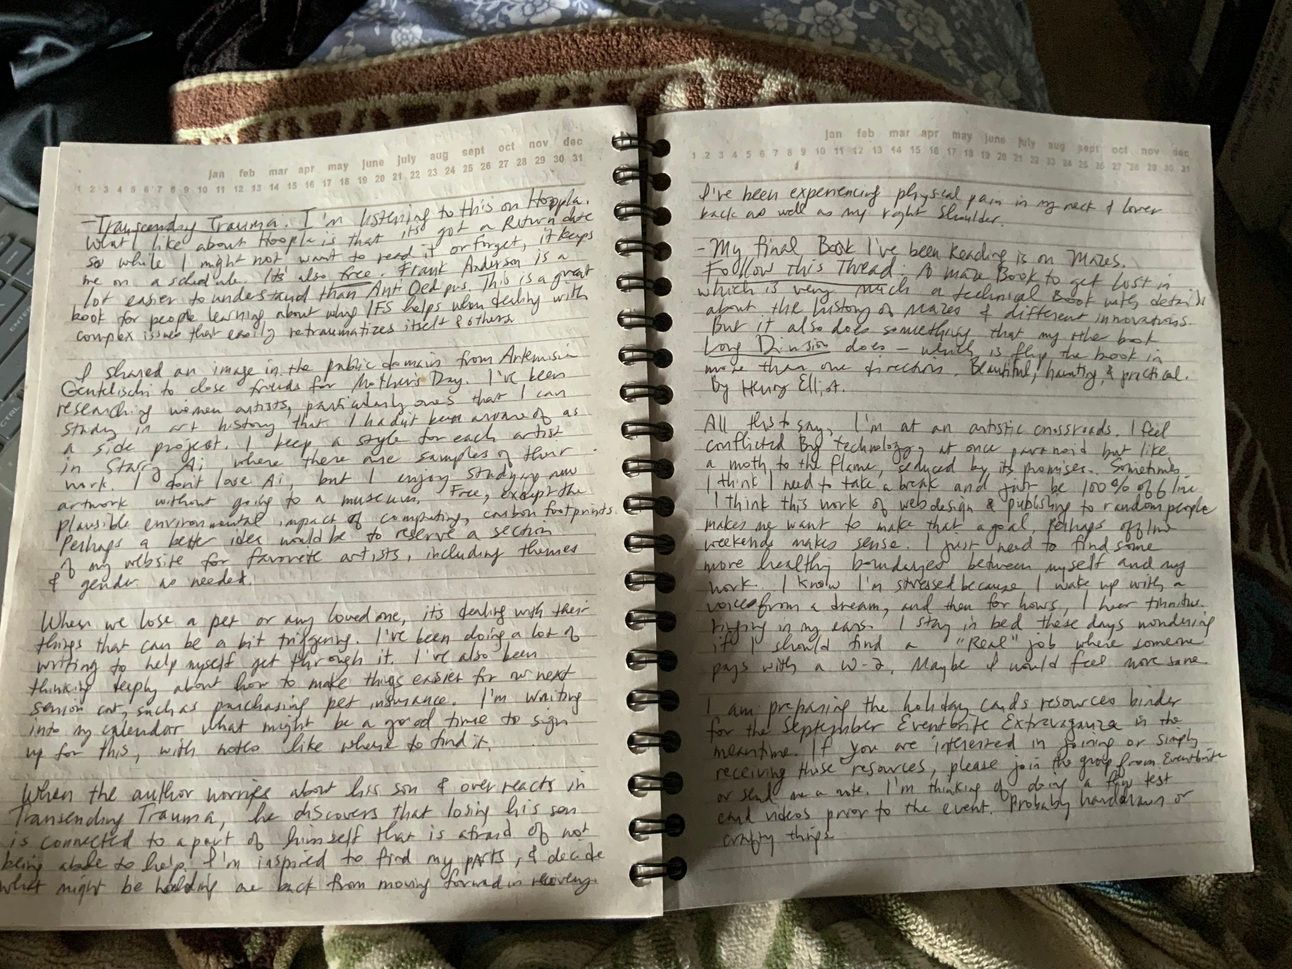 jan feb mar apr may june july aug sept oct nov dec
1 2 3 4 5 6 7 8 9 10 11 12 13 14 15 16 17 18 19 20 21 22 23 24 25 26 27 28 29 30 31
- Transcending Trauma. I'm listening to this on Hoopla.
What I like about Hoopla is that it's got a Return date
so while I might not want to read it or forget, it keeps
me on a schedule. Its also free. Frank Anderson is a
lot easier to understand than Anti Oedipus. This is a great
book for people learning about why IFS helps when dealing with
complex issues that easily retraumatizes itself & others.
I shared an image in the public domain from Artemisia
Gentileschi to close friends for Mother's Day. I've been
researching women artists, particularly ones that I can
study in art history that I hadn't been aware of as
a side project. I keep a style for each artist
in Starry Ai where there are samples of their
work. I don't love Ai, but I enjoy studying new
artwork without going to a museum. Free, except the
plausible environmental impact of computing, carbon footprints.
Perhaps a better idea would be to reserve a section
of my website for favorite artists, including themes
& gender as needed.
When we lose a pet or any loved one, its dealing with their
things that can be a bit triggering. I've been doing a lot of
writing to help myself get through it. I've also been
thinking deeply about how to make things easier for our next
senior cat, such as purchasing pet insurance. I'm writing
into my calendar what might be a good time to sign
up for this, with notes like where to find it.
When the author worries about his son & overreacts in
Transending Trauma, he discovers that losing his son
is connected to a part of himself that is afraid of not
being able to help. I'm inspired to find my parts, & decide
what might be holding me back from moving forward in recovery.
jan feb mar apr may june july aug sept oct nov dec
1 2 3 4 5 6 7 8 9 10 11 12 13 14 15 16 17 18 19 20 21 22 23 24 25 26 27 28 29 30 31
I've been experiencing physical pain in my neck & lower
back as well as my right shoulder.
- My final Book I've been Reading is on Mazes.
Follow this Thread: A Maze Book to get Lost in
which is very much a technical Book with details
about the history of mazes & different innovations
But it also does something that my other book
Long Division does - which is flip the book in
more than one direction. Beautiful, haunting, & practical.
By Henry Elliot.
All this to say, I'm at an artistic crossroads. I feel
conflicted By technology, at once paranoid but like
a moth to the flame, seduced by its promises. Sometimes
I think I need to take a break and just be 100% offline
I think this work of webdesign & publishing to random people
makes me want to make that a goal. Perhaps offline
weekends makes sense. I just need to find some
more healthy boundaries between myself and my
work. I know I'm stressed because I wake up with a
voice from a dream, and then for hours, I hear tinnitus
ringing in my ears. I stay in bed these days wondering
if I should find a "Real" job where someone
pays with a W-2. Maybe I would feel more sane.
I am preparing the holiday cards resources binder
for the September Eventbrite Extravaganza in the
meantime. If you are interested in joining or simply
receiving those resources, please join the group from Eventbrite
or send me a note. I'm thinking of doing a few test
card videos prior to the event. Probably handdrawn or
crafty things.